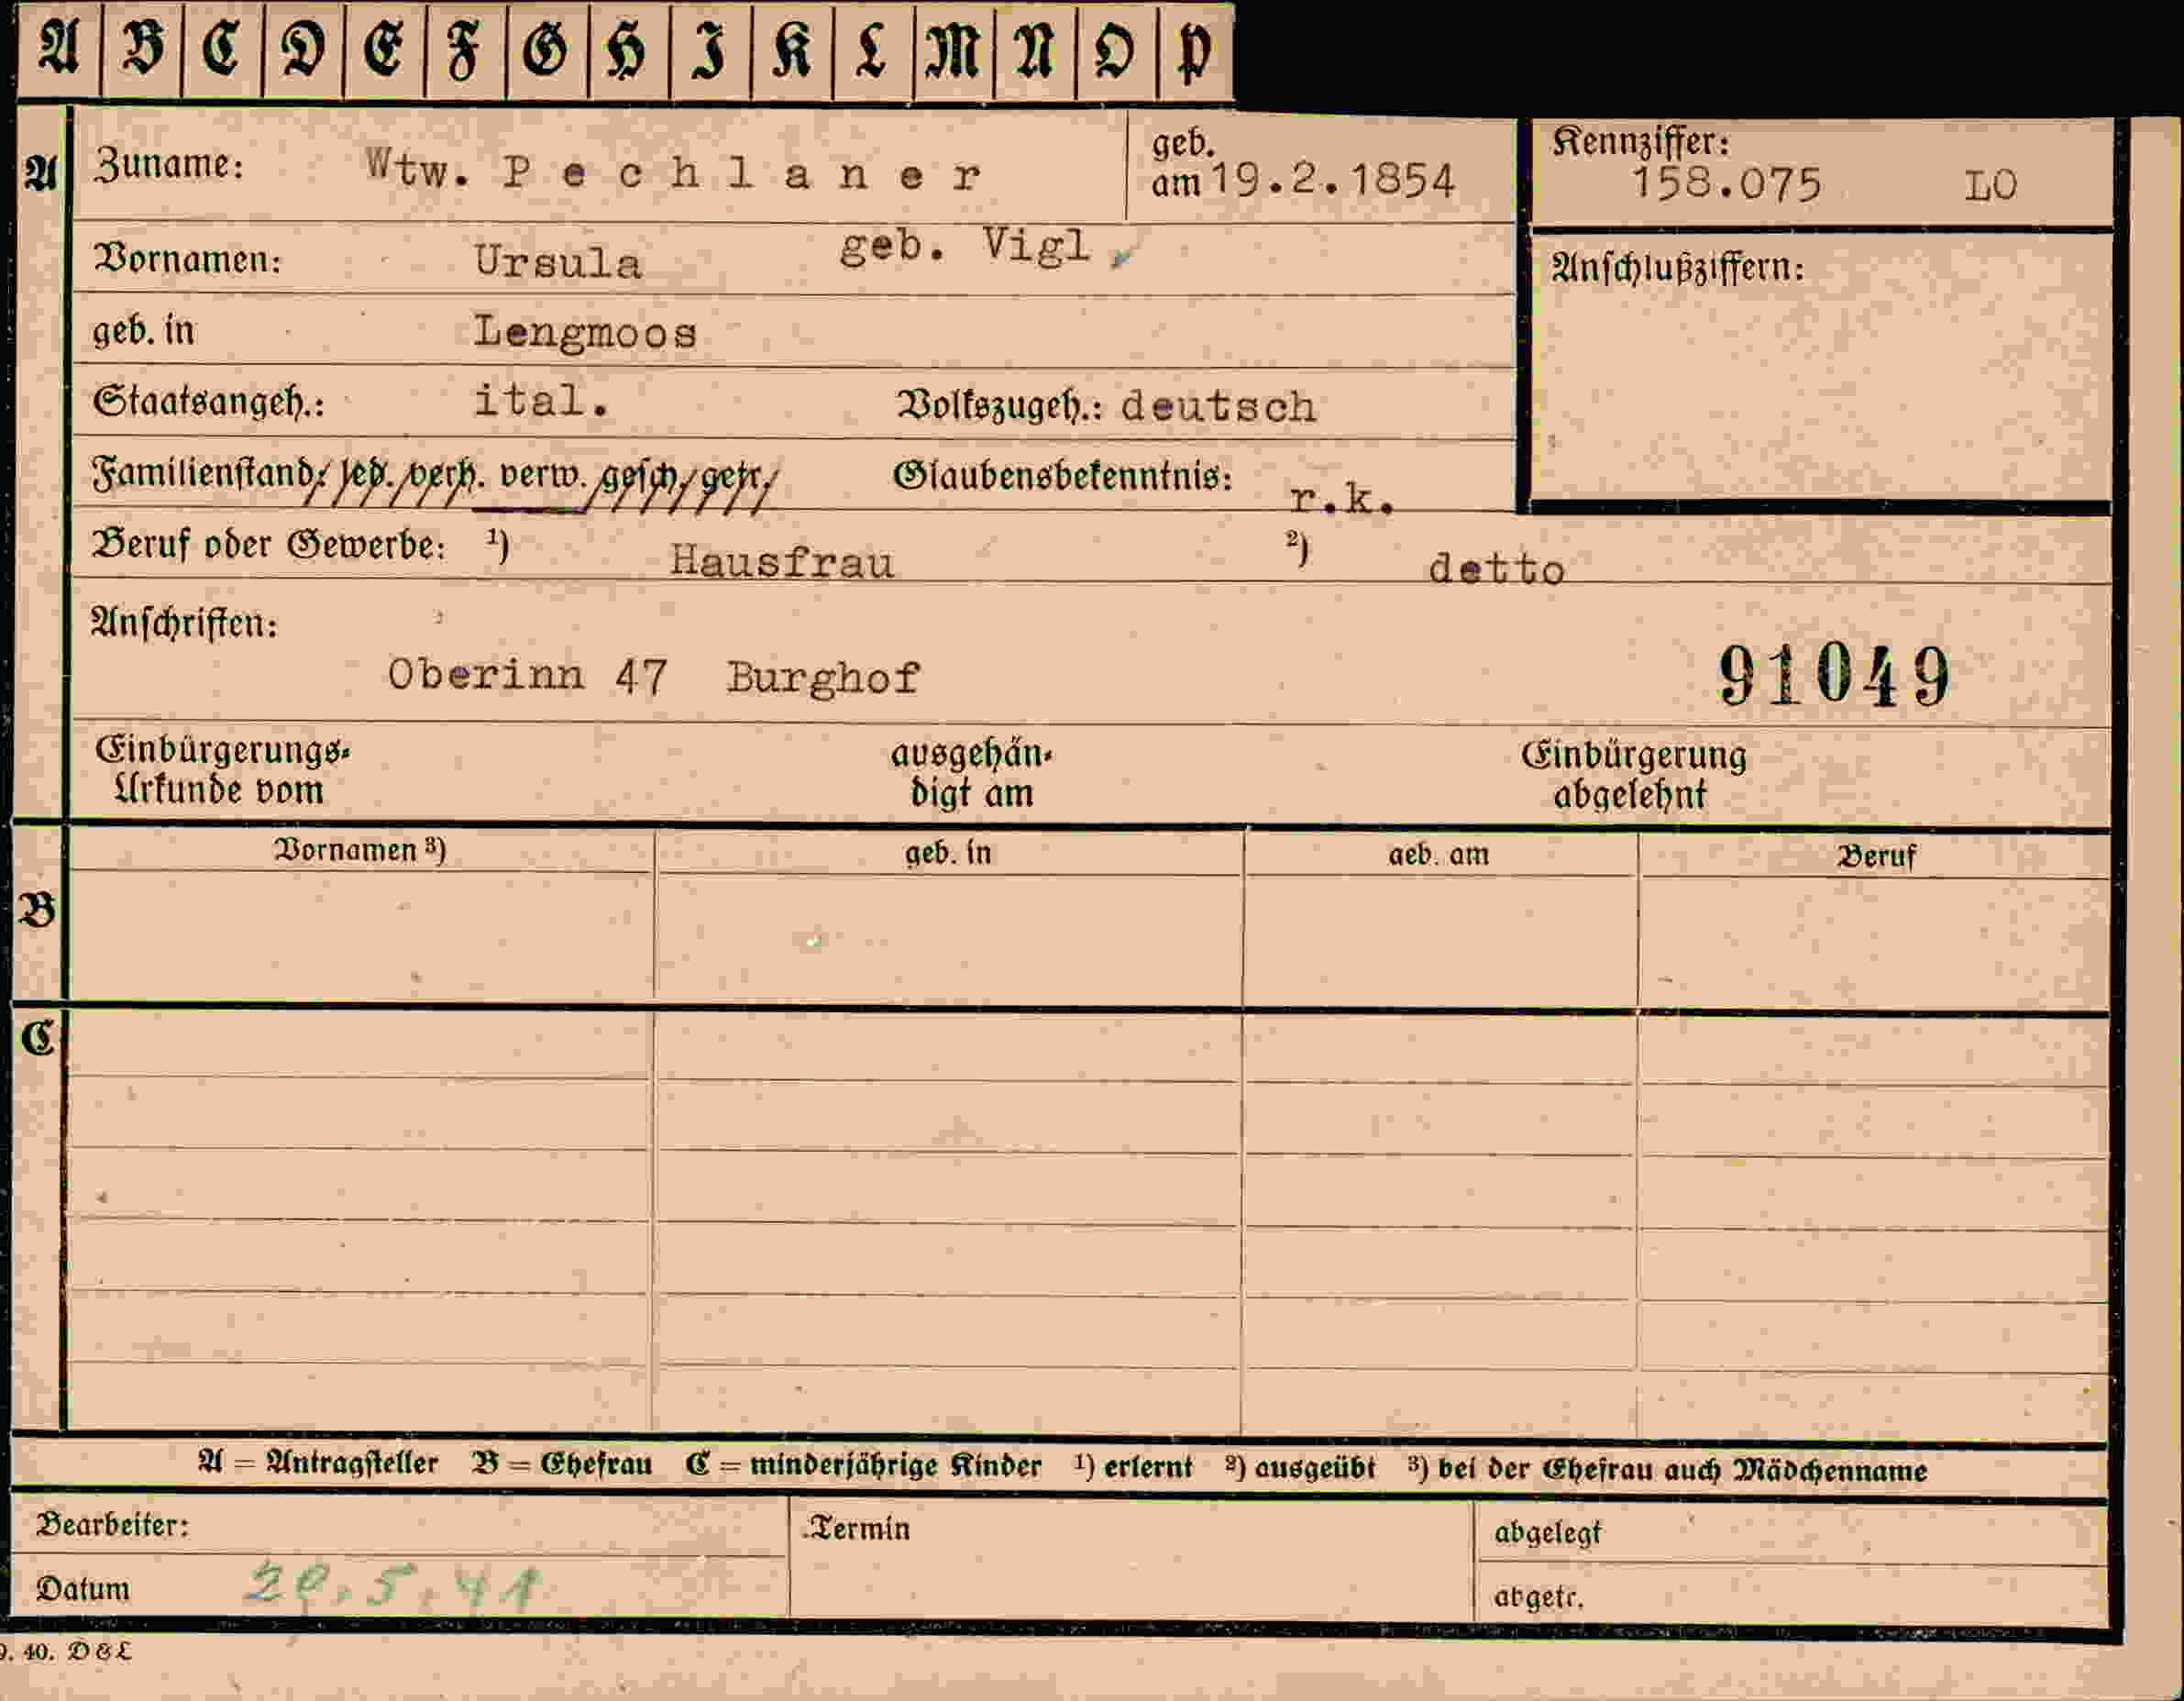 A B C D E F G H I K L M N O P
A Zuname: Wtw. Pechlaner geb. am 19.2.1854 Kennziffer: 158.075 LO
Vornamen: Ursula geb. Vigl Anschlußziffern:
geb. in Lengmoos
Staatsangeh.: ital. Volkszugeh.: deutsch
Familienstand: led. verh. verw. gesch. getr. Glaubensbekenntnis: r.k.
Beruf oder Gewerbe: ¹) Hausfrau ²) detto
Anschriften:
Oberinn 47 Burghof 91049
Einbürgerungs- ausgehän- Einbürgerung
Urkunde vom digt am abgelehnt
Vornamen ³) geb. in geb. am Beruf
B
C
A = Antragsteller B = Ehefrau C = minderjährige Kinder ¹) erlernt ²) ausgeübt ³) bei der Ehefrau auch Mädchenname
Bearbeiter: Termin abgelegt
Datum 5.41 abgetr.
40. D&L